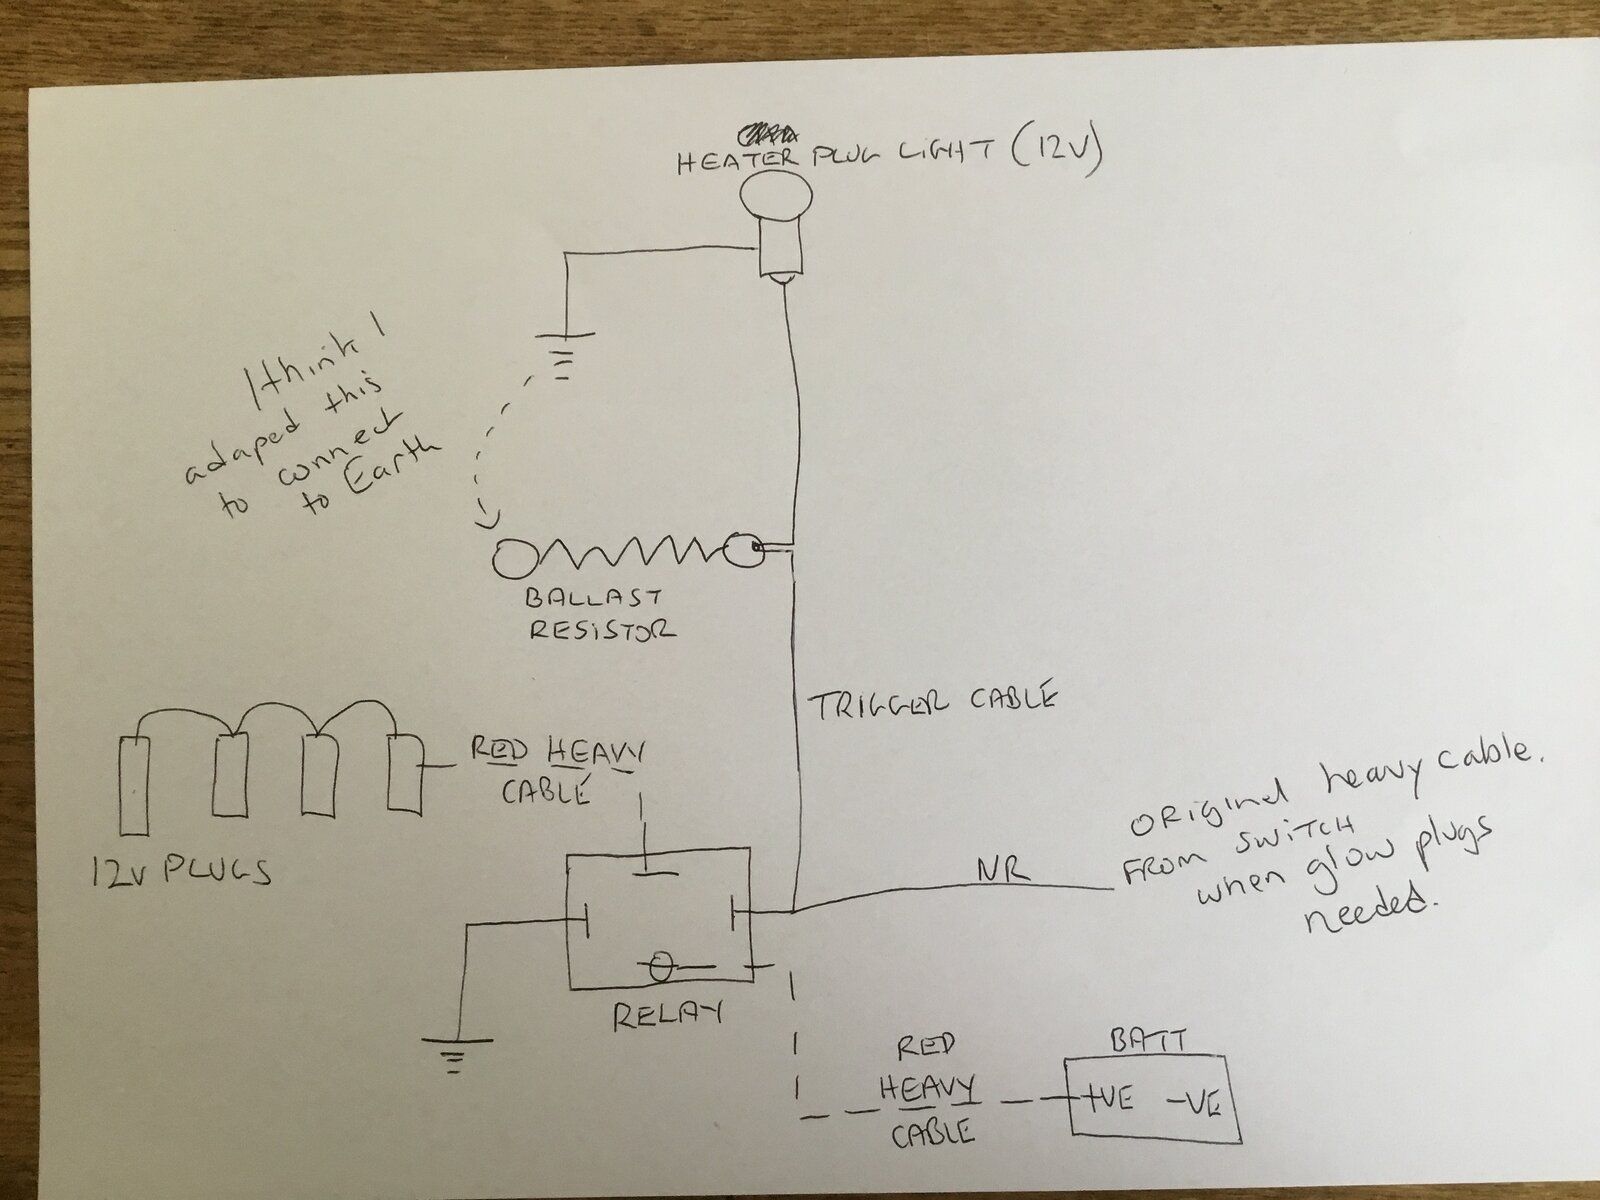 HEATER PLUG LIGHT (12V)
I think I
adaped this
to connect
to Earth
BALLAST
RESISTOR
TRIGGER CABLE
RED HEAVY
CABLE
12V PLUGS
ORiginal heavy cable.
FROM SWiTCH
when glow plugs
needed.
NR
RELAY
RED
HEAVY
CABLE
BATT
+VE -VE